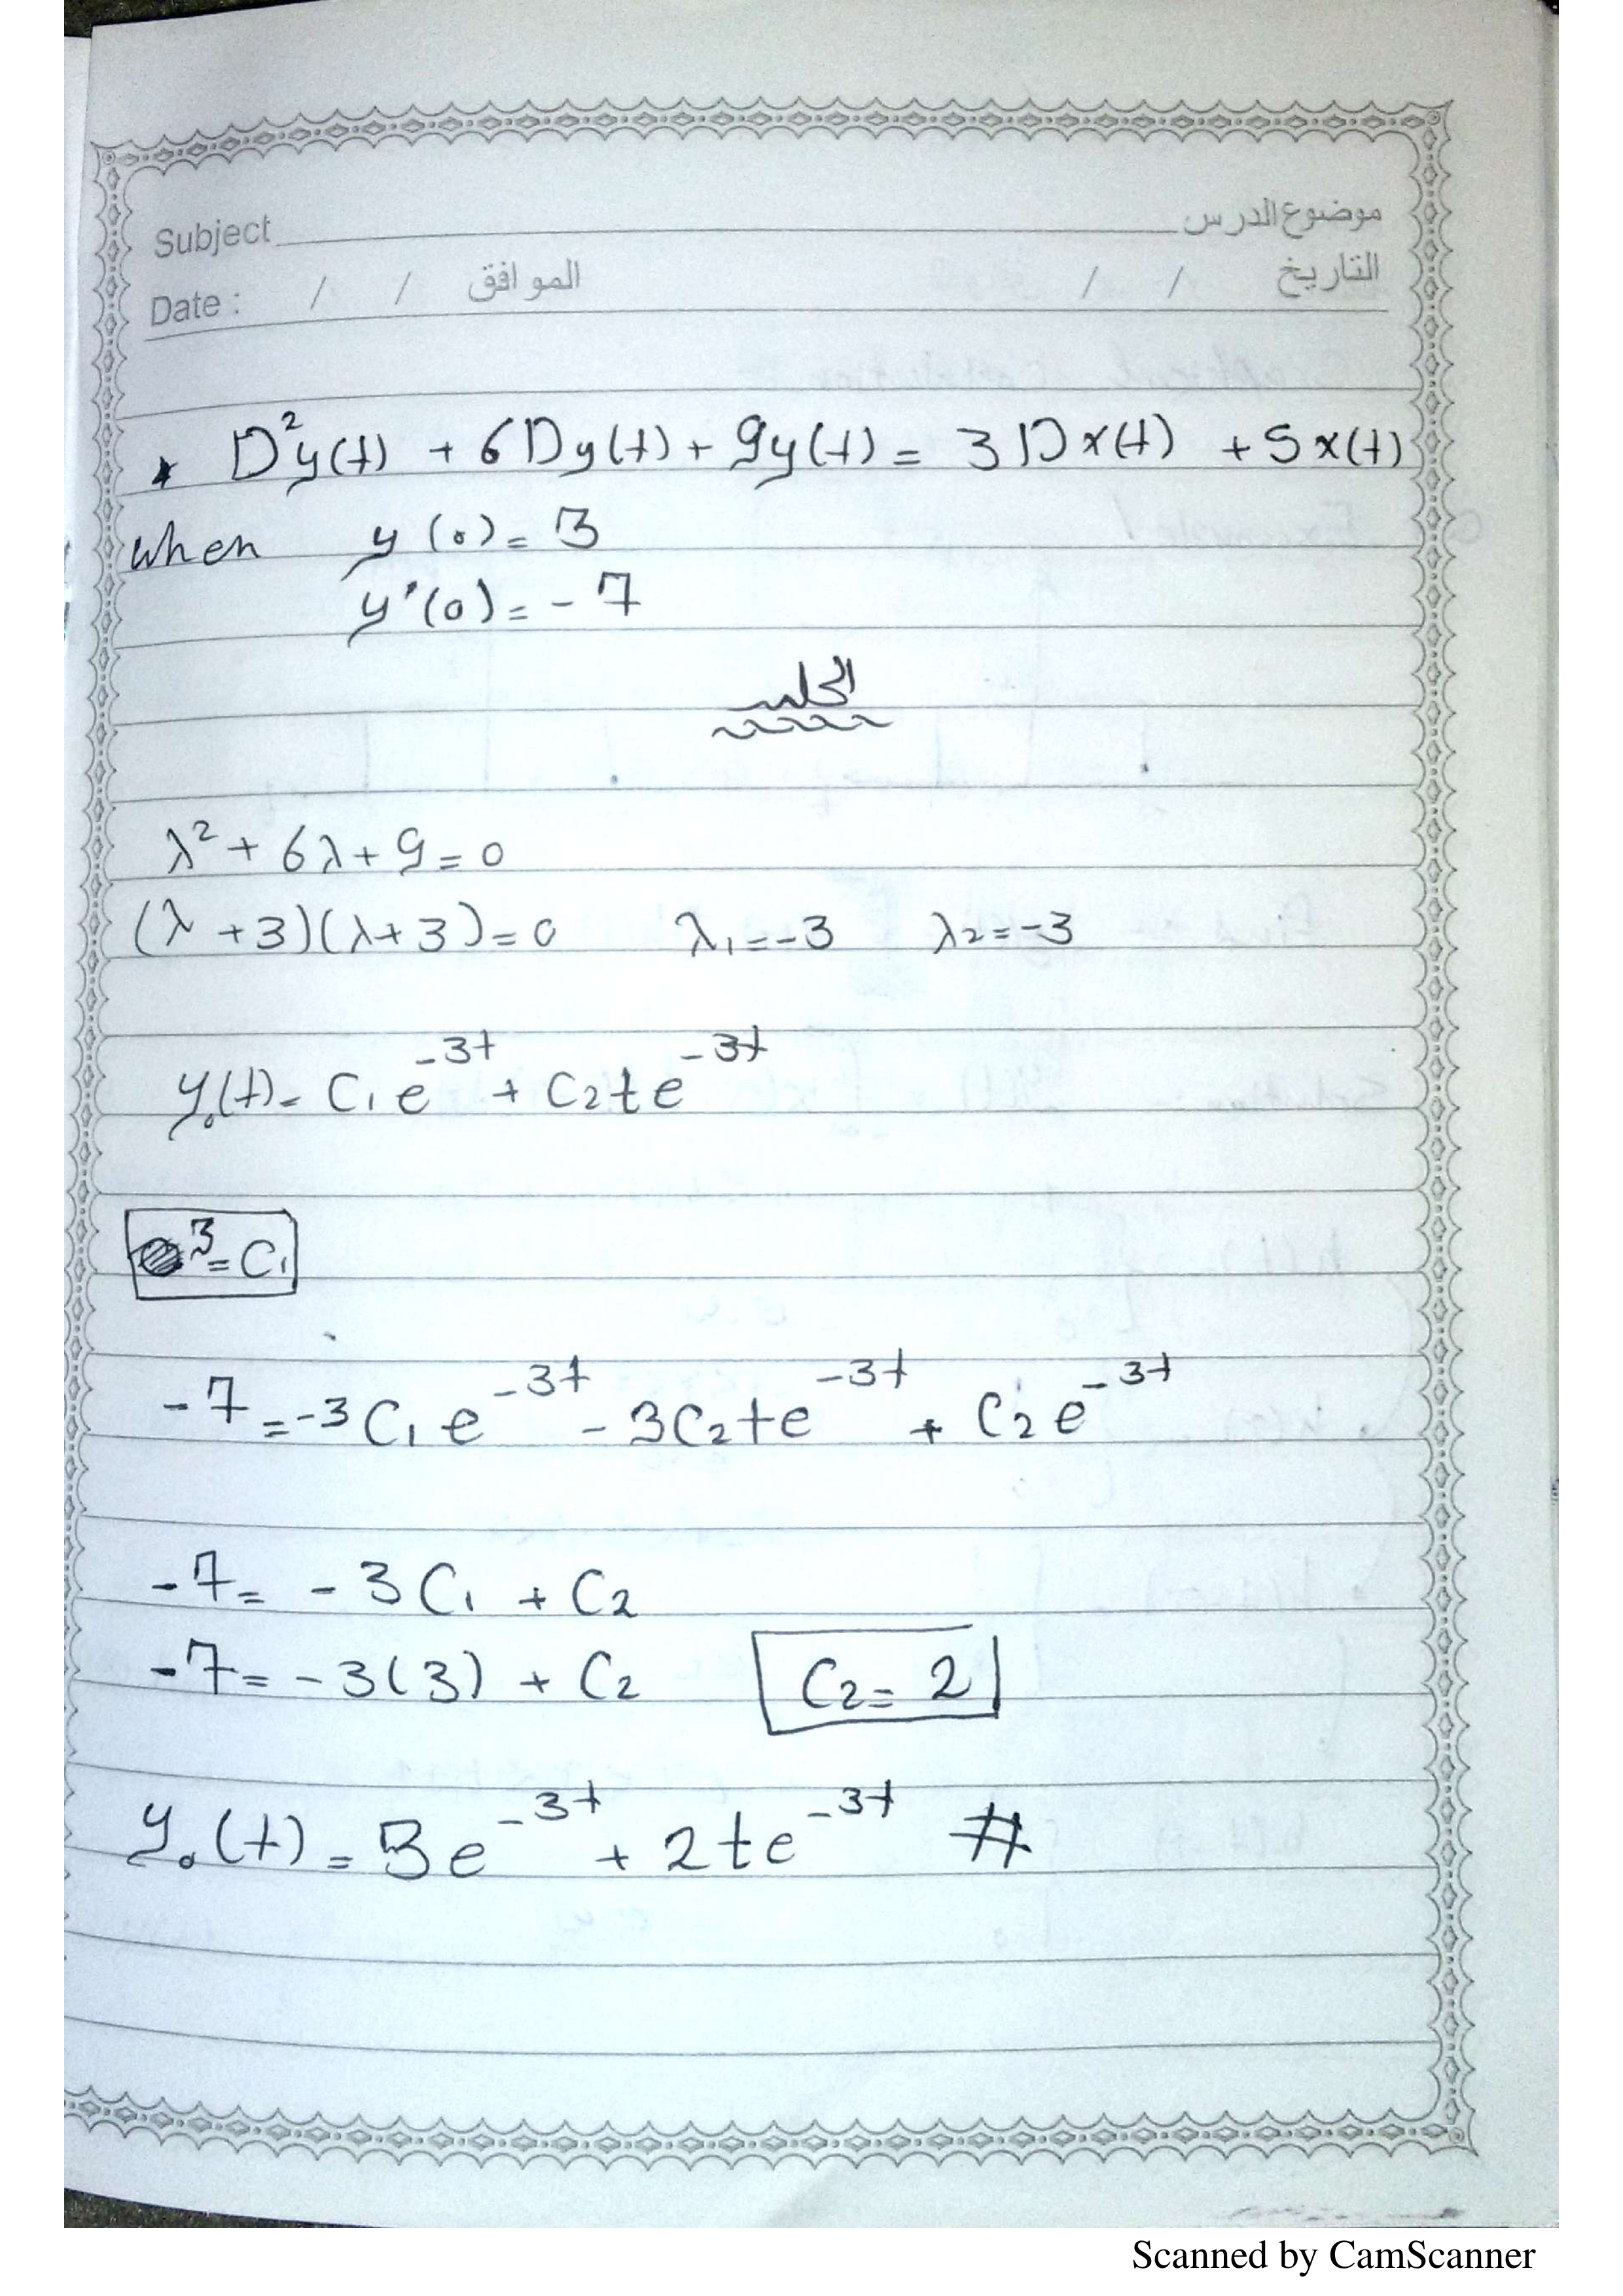 Subject موضوع الدرس
Date : / / الموافق / / التاريخ
* D²y(t) + 6Dy(t) + 9y(t) = 3Dx(t) + 5x(t)
when y(0) = 3
y'(0) = -7
الحل
λ² + 6λ + 9 = 0
(λ + 3)(λ + 3) = 0 λ₁ = -3 λ₂ = -3
y₀(t) = C₁e⁻³ᵗ + C₂te⁻³ᵗ
3 = C₁
-7 = -3C₁e⁻³ᵗ - 3C₂te⁻³ᵗ + C₂e⁻³ᵗ
-7 = -3C₁ + C₂
-7 = -3(3) + C₂ C₂ = 2
y₀(t) = 3e⁻³ᵗ + 2te⁻³ᵗ #
Scanned by CamScanner